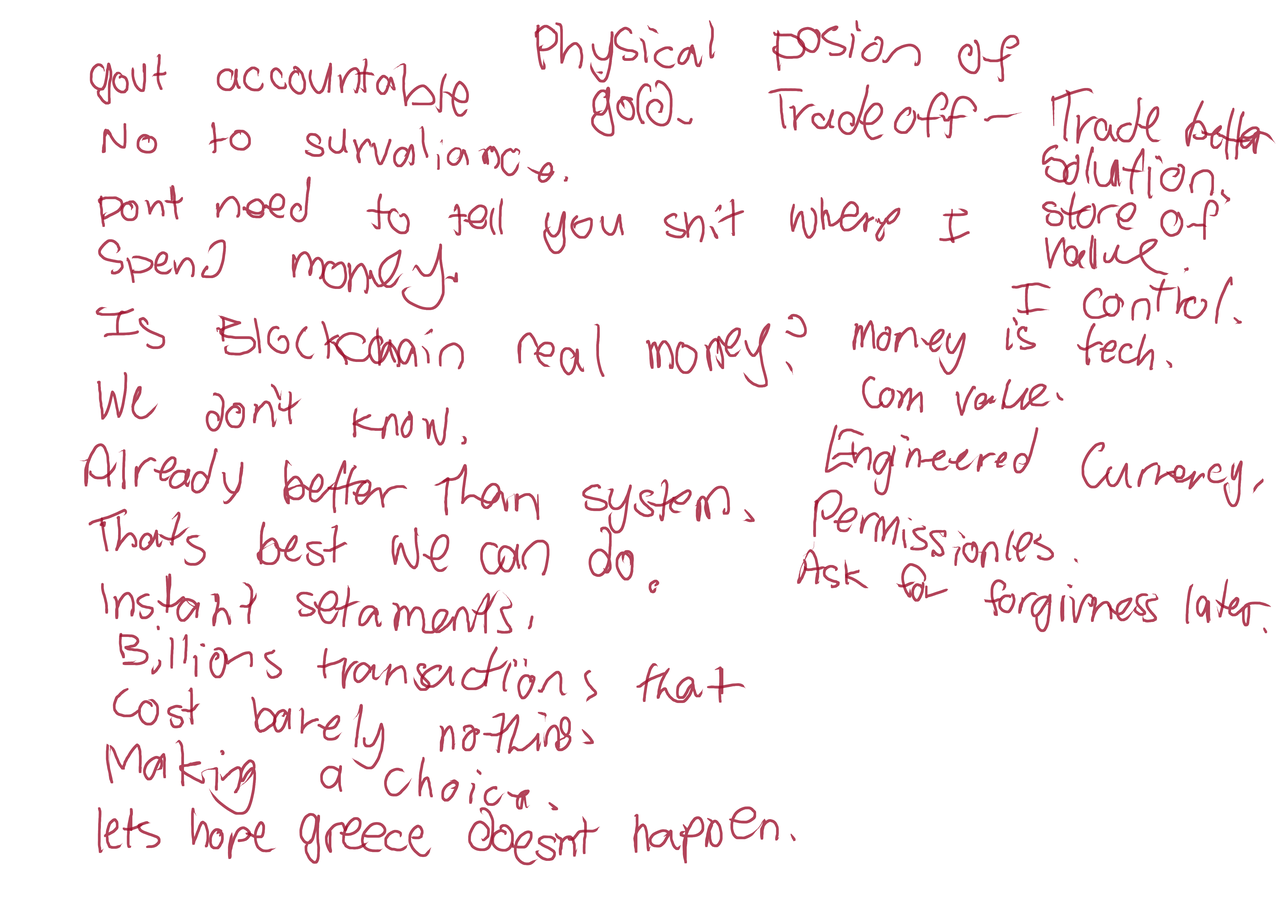 govt accountable
No to survaliance.
Dont need to tell you shit where I
Spend money.
Is Blockchain real money?
We don't know.
Already better than system.
Thats best we can do.
Instant setaments.
Billions transactions that
Cost barely nothing.
Making a choice.
lets hope greece doesnt happen.
Physical posion of
gold. Tradeoff - Trade better
solution.
store of
value.
I control.
money is tech.
Com value.
Engineered Currency.
Permissionles.
Ask for forgivness later.